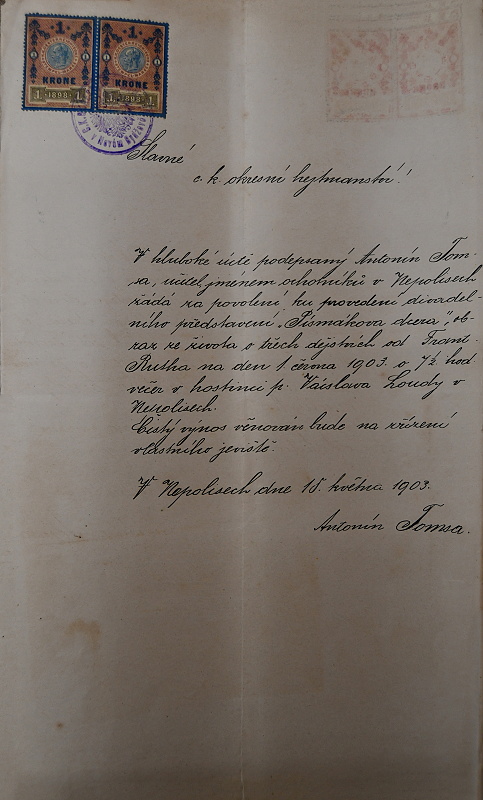 1 1
KRONE KRONE
1 1898 1. 1. 1898 1.
Slavné
c. k. okresní hejtmanství!
V hluboké úctě podepsaný Antonín Tom-
sa, učitel, jménem ochotníků v Nepolisech
žádá za povolení ku provedení divadel-
ního představení „Písmákova dcera", ob-
raz ze života o třech dějstvích od Frant.
Rutha na den 1. června 1903 o 7½ hod
večer v hostinci p. Václava Loudy v
Nepolisech.
Čistý výnos věnován bude na zřízení
vlastního jeviště.
V Nepolisech dne 15. května 1903.
Antonín Tomsa.